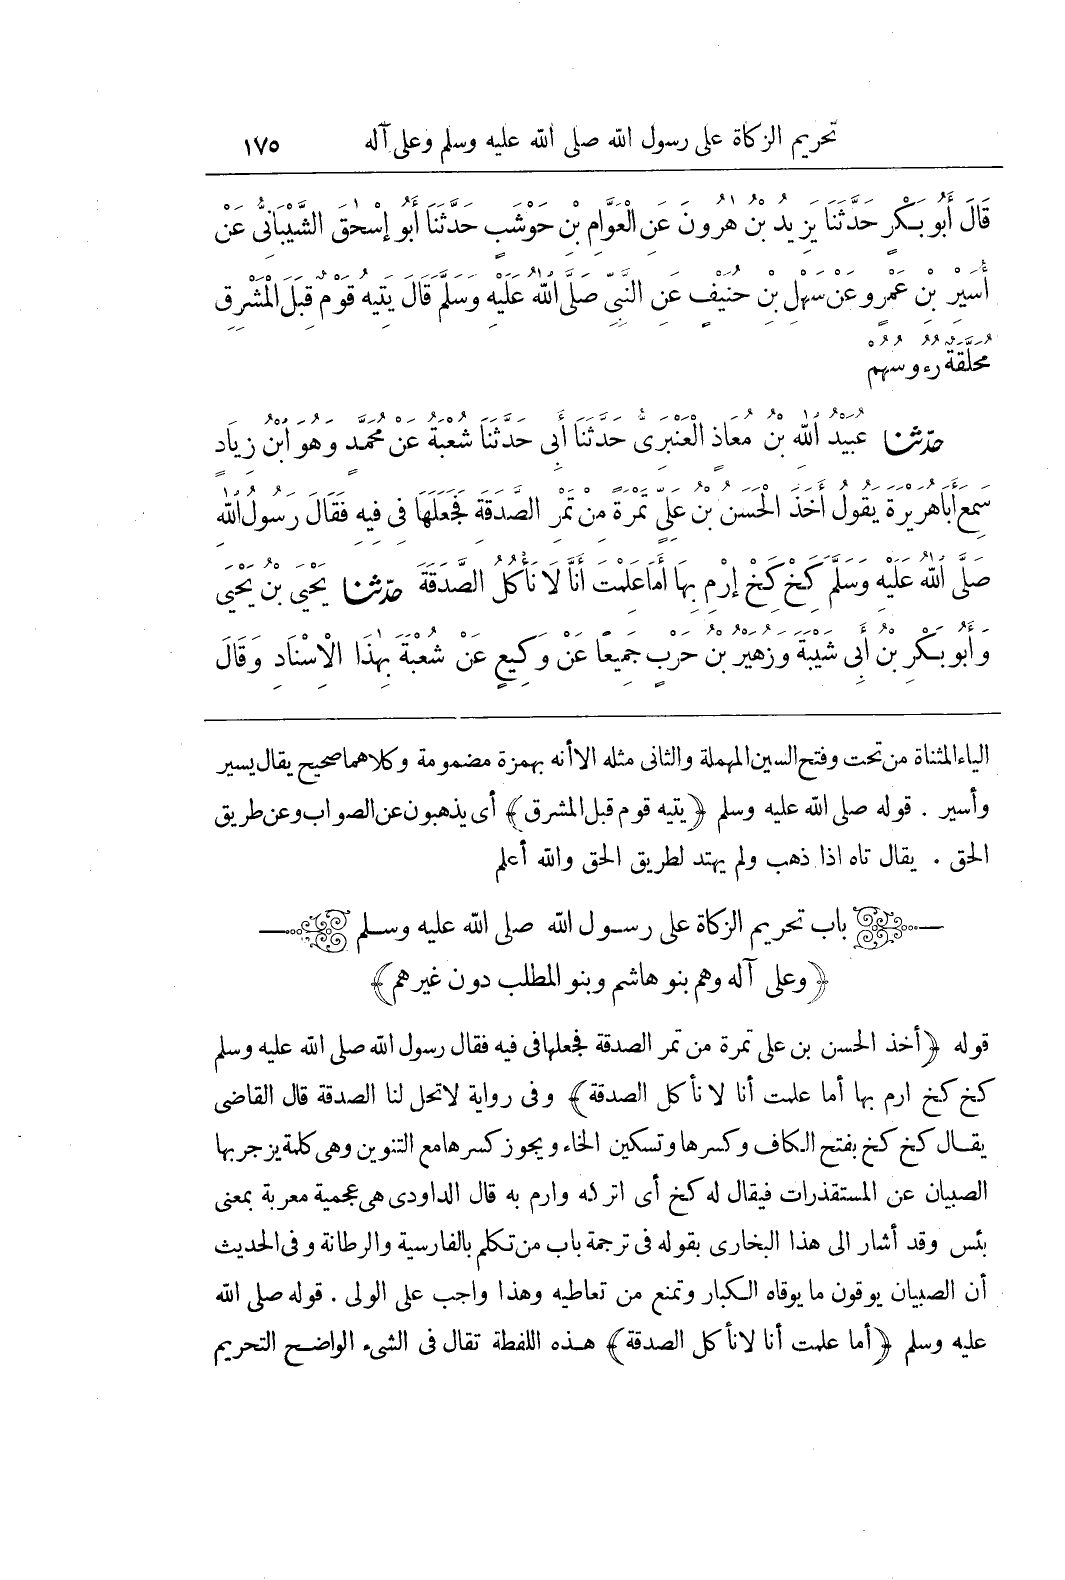 تحريم الزكاة على رسول الله صلى الله عليه وسلم وعلى آله ١٧٥
قَالَ أَبُو بَكْرٍ حَدَّثَنَا يَزِيدُ بْنُ هٰرُونَ عَنِ الْعَوَّامِ بْنِ حَوْشَبٍ حَدَّثَنَا أَبُو إِسْحٰقَ الشَّيْبَانِىُّ عَنْ
أُسَيْرِ بْنِ عَمْرٍو عَنْ سَهْلِ بْنِ حُنَيْفٍ عَنِ النَّبِىِّ صَلَّى اللّٰهُ عَلَيْهِ وَسَلَّمَ قَالَ يَتِيهُ قَوْمٌ قِبَلَ الْمَشْرِقِ
مُحَلَّقَةٌ رُءُوسُهُمْ
حدّثنا عُبَيْدُ اللّٰهِ بْنُ مُعَاذٍ الْعَنْبَرِىُّ حَدَّثَنَا أَبِى حَدَّثَنَا شُعْبَةُ عَنْ مُحَمَّدٍ وَهُوَ ابْنُ زِيَادٍ
سَمِعَ أَبَا هُرَيْرَةَ يَقُولُ أَخَذَ الْحَسَنُ بْنُ عَلِىٍّ تَمْرَةً مِنْ تَمْرِ الصَّدَقَةِ فَجَعَلَهَا فِى فِيهِ فَقَالَ رَسُولُ اللّٰهِ
صَلَّى اللّٰهُ عَلَيْهِ وَسَلَّمَ كَخْ كَخْ إِرْمِ بِهَا أَمَا عَلِمْتَ أَنَّا لَا نَأْكُلُ الصَّدَقَةَ حدّثنا يَحْيَى بْنُ يَحْيَى
وَأَبُو بَكْرِ بْنُ أَبِى شَيْبَةَ وَزُهَيْرُ بْنُ حَرْبٍ جَمِيعًا عَنْ وَكِيعٍ عَنْ شُعْبَةَ بِهٰذَا الْإِسْنَادِ وَقَالَ
الياء المثناة من تحت وفتح السين المهملة والثانى مثله الا أنه بهمزة مضمومة وكلاهما صحيح يقال يسير
وأسير . قوله صلى الله عليه وسلم ﴿يتيه قوم قبل المشرق﴾ أى يذهبون عن الصواب وعن طريق
الحق . يقال تاه اذا ذهب ولم يهتد لطريق الحق والله أعلم
باب تحريم الزكاة على رسول الله صلى الله عليه وسلم
﴿وعلى آله وهم بنو هاشم وبنو المطلب دون غيرهم﴾
قوله ﴿أخذ الحسن بن على تمرة من تمر الصدقة فجعلها فى فيه فقال رسول الله صلى الله عليه وسلم
كخ كخ ارم بها أما علمت أنا لا نأكل الصدقة﴾ وفى رواية لا تحل لنا الصدقة قال القاضى
يقال كخ كخ بفتح الكاف وكسرها وتسكين الخاء ويجوز كسرها مع التنوين وهى كلمة يزجر بها
الصبيان عن المستقذرات فيقال له كخ أى اتركه وارم به قال الداودى هى عجمية معربة بمعنى
بئس وقد أشار الى هذا البخارى بقوله فى ترجمة باب من تكلم بالفارسية والرطانة وفى الحديث
أن الصبيان يوقون ما يوقاه الكبار وتمنع من تعاطيه وهذا واجب على الولى . قوله صلى الله
عليه وسلم ﴿أما علمت أنا لا نأكل الصدقة﴾ هذه اللفظة تقال فى الشىء الواضح التحريم